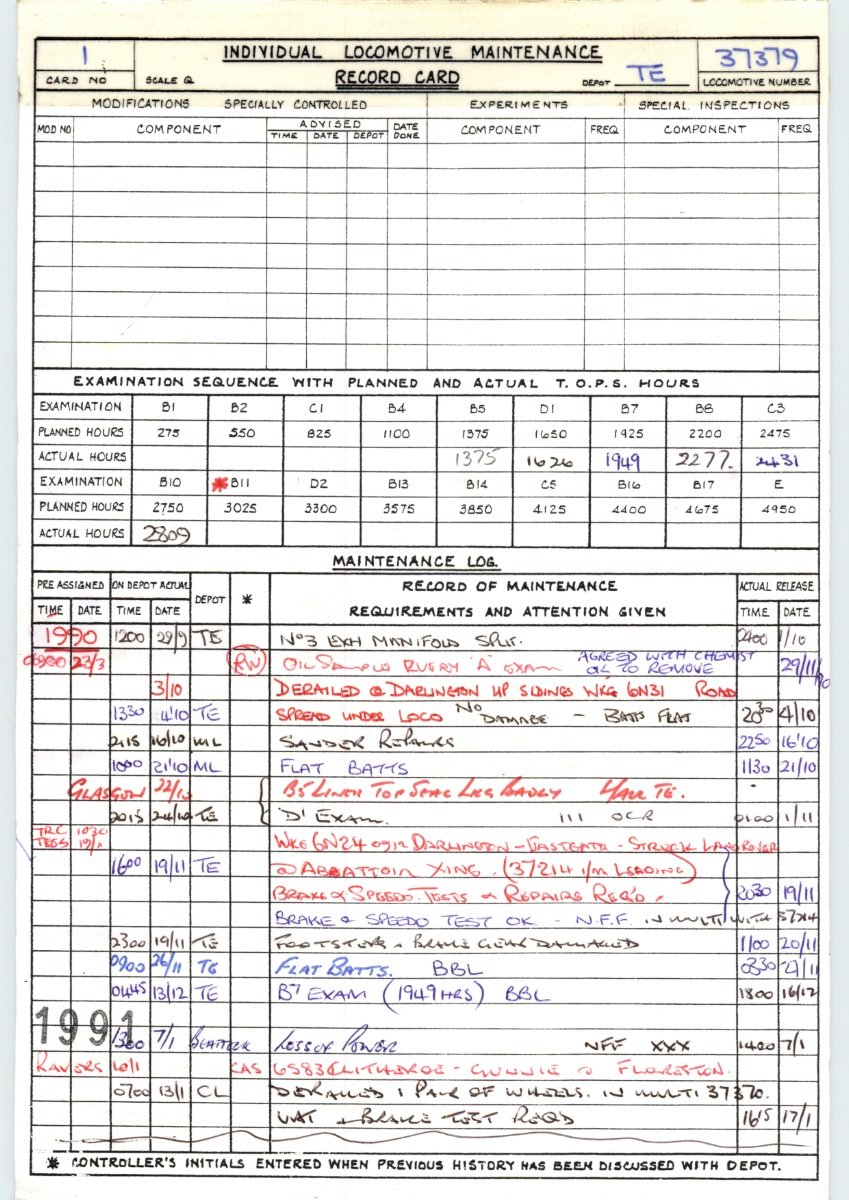 1 INDIVIDUAL LOCOMOTIVE MAINTENANCE 37379
CARD NO SCALE Q RECORD CARD DEPOT TE LOCOMOTIVE NUMBER
MODIFICATIONS SPECIALLY CONTROLLED EXPERIMENTS SPECIAL INSPECTIONS
MOD NO COMPONENT ADVISED DATE DONE COMPONENT FREQ COMPONENT FREQ
TIME DATE DEPOT
EXAMINATION SEQUENCE WITH PLANNED AND ACTUAL T.O.P.S. HOURS
EXAMINATION B1 B2 C1 B4 B5 D1 B7 B8 C3
PLANNED HOURS 275 550 825 1100 1375 1650 1925 2200 2475
ACTUAL HOURS 1375 1626 1949 2277. 2431
EXAMINATION B10 *B11 D2 B13 B14 C5 B16 B17 E
PLANNED HOURS 2750 3025 3300 3575 3850 4125 4400 4675 4950
ACTUAL HOURS 2809
MAINTENANCE LOG.
PRE ASSIGNED ON DEPOT ACTUAL DEPOT * RECORD OF MAINTENANCE ACTUAL RELEASE
TIME DATE TIME DATE REQUIREMENTS AND ATTENTION GIVEN TIME DATE
1990 1200 29/9 TE No3 EXH MANIFOLD SPLIT. 2400 1/10
23/3 RW OIL SAMPLE RUGBY "A" EXAM AGREED WITH CHEMIST OIL TO REMOVE 29/11/90
3/10 DERAILED @ DARLINGTON UP SIDINGS WKG 6N31 ROAD
1330 4/10 TE SPREAD UNDER LOCO No DAMAGE - BATTS FLAT 2030 4/10
2115 16/10 ML SANDER REPAIRS 2250 16/10
1000 21/10 ML FLAT BATTS 1130 21/10
GLASGOW 22/10 B5 LINER TOP SEAL LKG BADLY TE.
2015 24/10 TE 'D' EXAM. OCR 0100 1/11
TEES WKG 6N24 0912 DARLINGTON - EASTGATE - STRUCK LANDROVER
1600 19/11 TE @ ABBATTOIR XING. (37214 I/M LEADING)
BRAKE & SPEEDO. TESTS & REPAIRS REQ'D. 2030 19/11
BRAKE & SPEEDO TEST OK - N.F.F. IN MULTI WITH 37214
2300 19/11 TE FOOTSTEPS & BRAKE GEAR DAMAGED 1100 20/11
0900 26/11 TE FLAT BATTS. BBL 0330 27/11
0445 13/12 TE B7 EXAM (1949 HRS) BBL 1800 16/12
1991
1300 7/1 BEATTOCK LOSS OF POWER NFF XXX 1400 7/1
RAVERS 10/1 CAS 6S83 CLITHEROE - GUNNIE @ FLORISTON.
0700 13/1 CL DERAILED 1 PAIR OF WHEELS. IN MULTI 37370.
UAT & BRAKE TEST REQD 1615 17/1
* CONTROLLER'S INITIALS ENTERED WHEN PREVIOUS HISTORY HAS BEEN DISCUSSED WITH DEPOT.